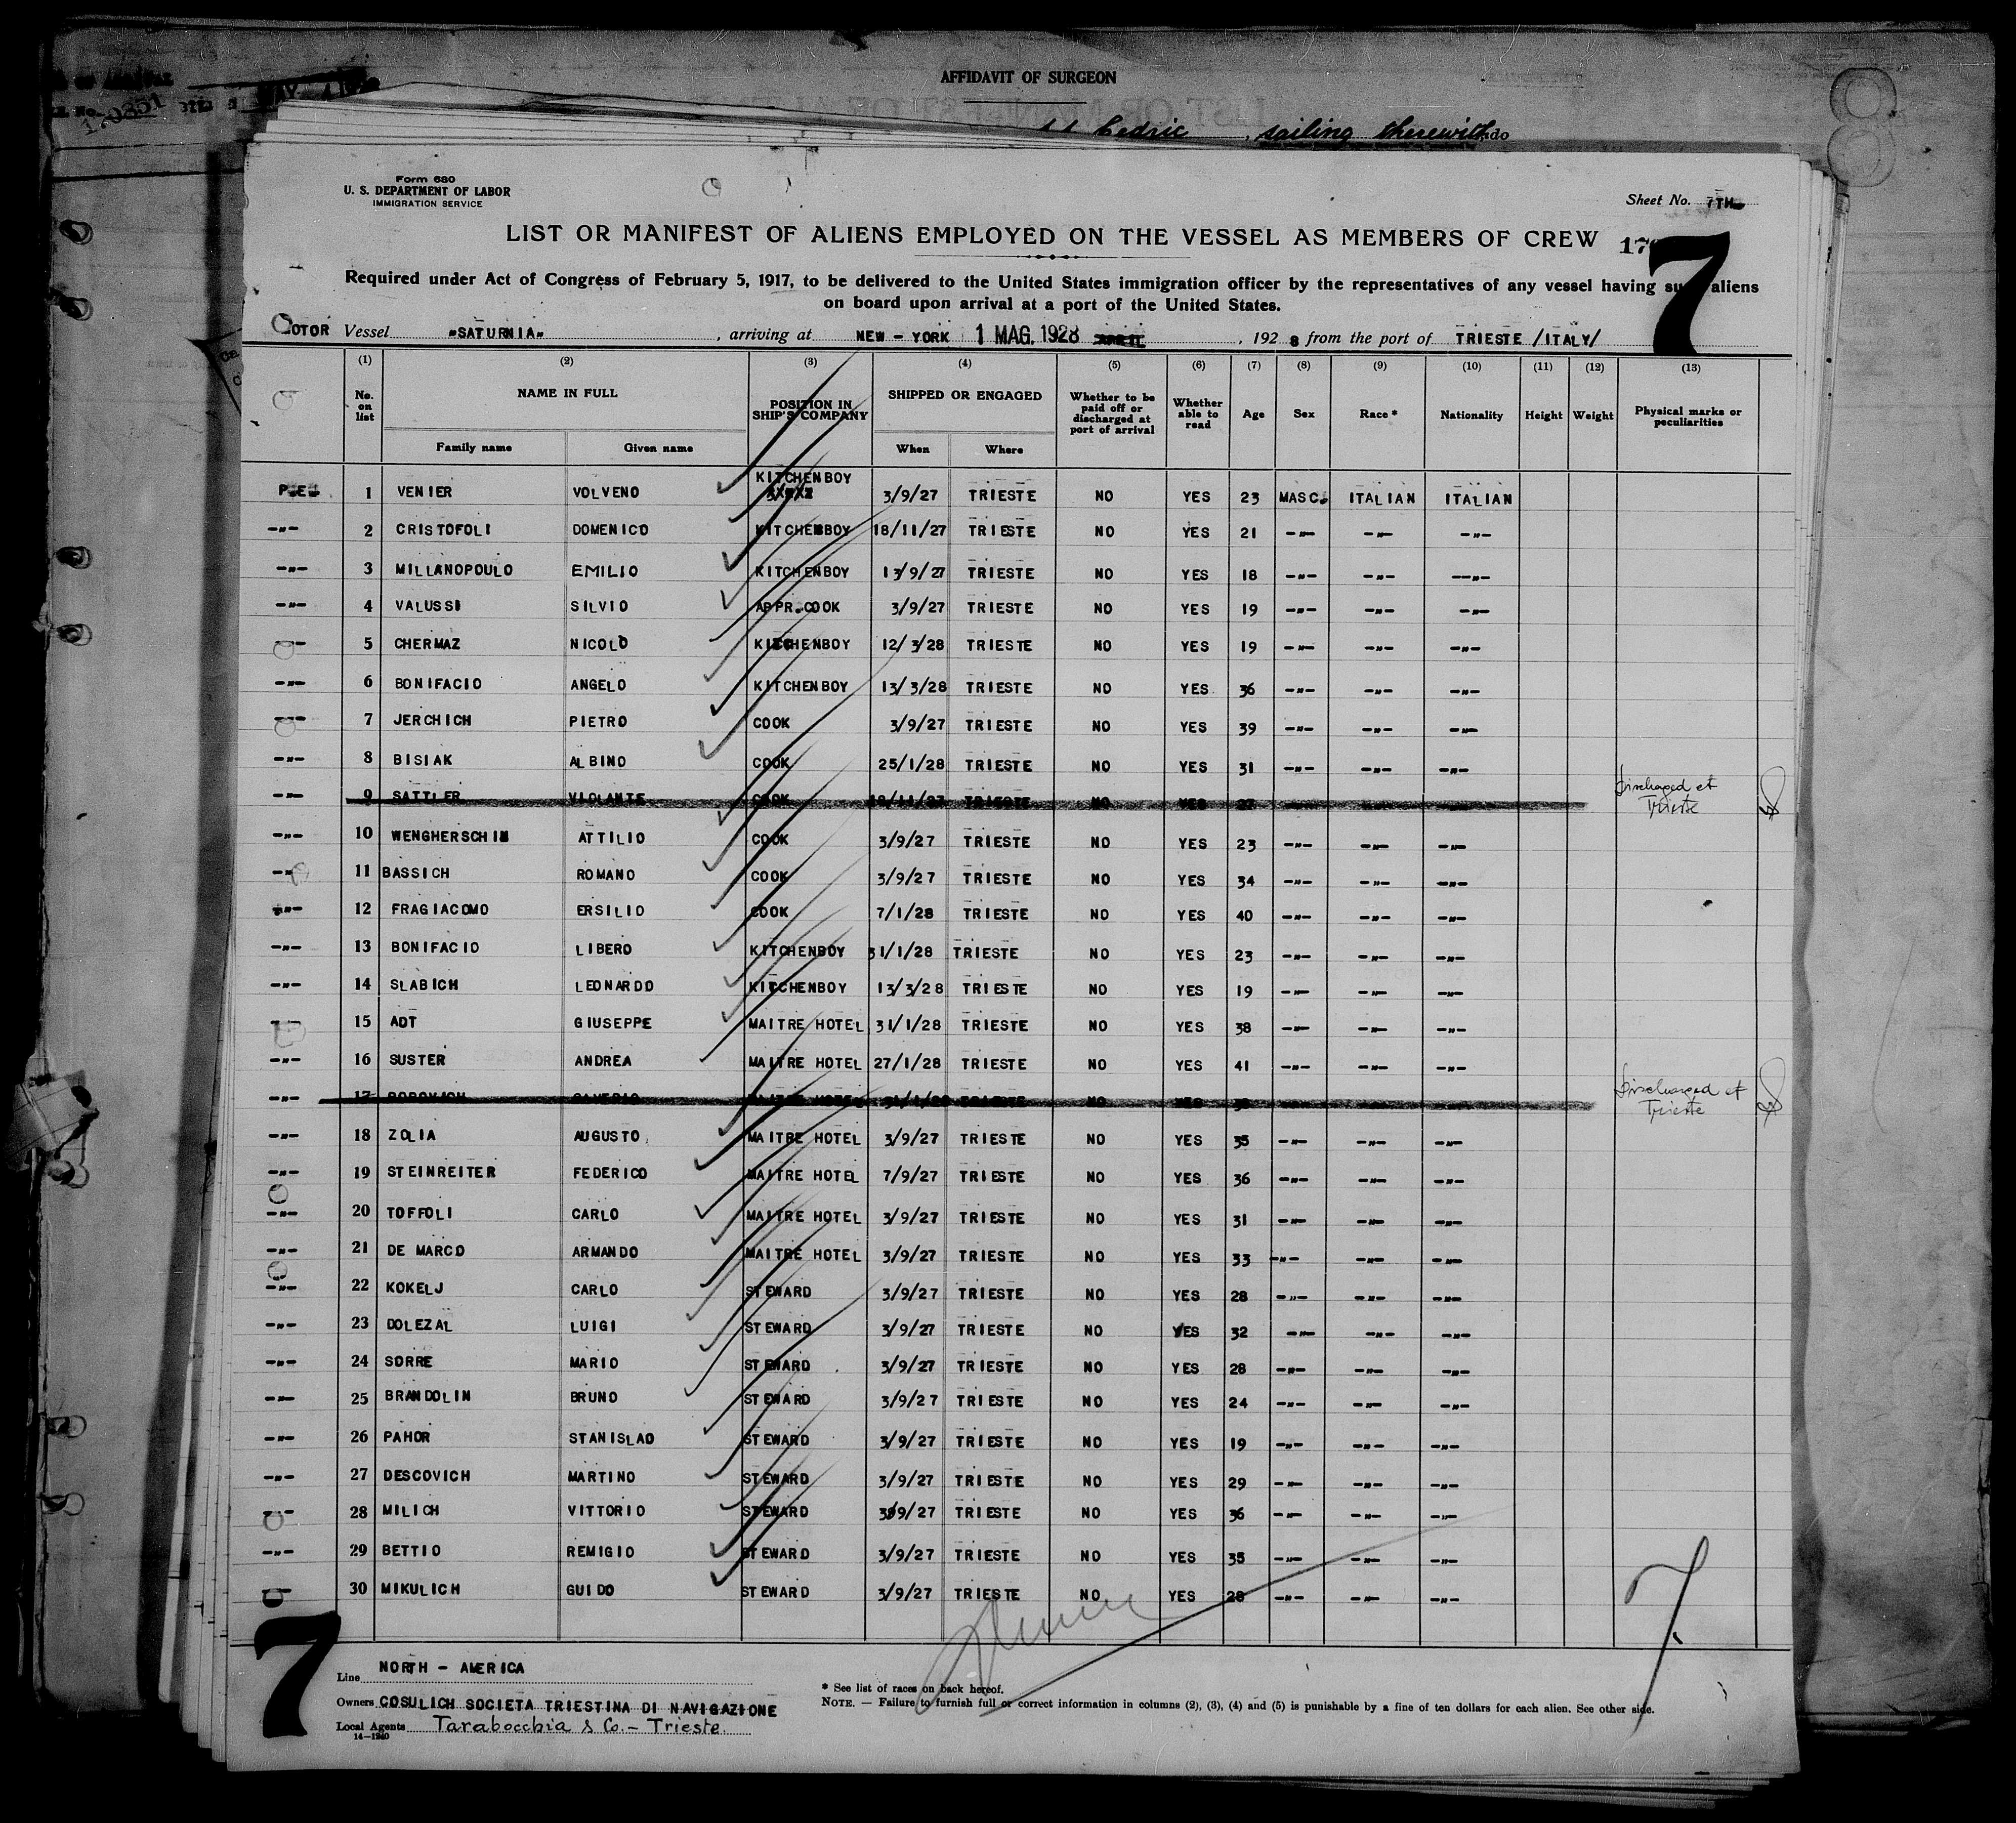 AFFIDAVIT OF SURGEON
Cedric, sailing therewith, do
Form 680
U. S. DEPARTMENT OF LABOR
IMMIGRATION SERVICE
Sheet No. 7TH
LIST OR MANIFEST OF ALIENS EMPLOYED ON THE VESSEL AS MEMBERS OF CREW
7
Required under Act of Congress of February 5, 1917, to be delivered to the United States immigration officer by the representatives of any vessel having such aliens
on board upon arrival at a port of the United States.
MOTOR Vessel "SATURNIA", arriving at NEW-YORK 1 MAG. 1928 APRIL, 1928 from the port of TRIESTE /ITALY/
(1) (2) (3) (4) (5) (6) (7) (8) (9) (10) (11) (12) (13)
No. on list NAME IN FULL Family name Given name POSITION IN SHIP'S COMPANY SHIPPED OR ENGAGED When Where Whether to be paid off or discharged at port of arrival Whether able to read Age Sex Race * Nationality Height Weight Physical marks or peculiarities
1 VENIER VOLVENO KITCHENBOY 3/9/27 TRIESTE NO YES 23 MASC. ITALIAN ITALIAN
-"- 2 CRISTOFOLI DOMENICO KITCHENBOY 18/11/27 TRIESTE NO YES 21 -"- -"- -"-
-"- 3 MILLANOPOULO EMILIO KITCHENBOY 13/9/27 TRIESTE NO YES 18 -"- -"- -"-
-"- 4 VALUSSI SILVIO APPR.COOK 3/9/27 TRIESTE NO YES 19 -"- -"- -"-
-"- 5 CHERMAZ NICOLÒ KITCHENBOY 12/3/28 TRIESTE NO YES 19 -"- -"- -"-
-"- 6 BONIFACIO ANGELO KITCHENBOY 13/3/28 TRIESTE NO YES 36 -"- -"- -"-
-"- 7 JERCHICH PIETRO COOK 3/9/27 TRIESTE NO YES 39 -"- -"- -"-
-"- 8 BISIAK ALBINO COOK 25/1/28 TRIESTE NO YES 31 -"- -"- -"-
-"- 9 SATTLER VIOLANTE COOK 18/11/27 TRIESTE NO YES 27 Discharged at Trieste
-"- 10 WENGHERSCHIN ATTILIO COOK 3/9/27 TRIESTE NO YES 23 -"- -"- -"-
-"- 11 BASSICH ROMANO COOK 3/9/27 TRIESTE NO YES 34 -"- -"- -"-
-"- 12 FRAGIACOMO ERSILIO COOK 7/1/28 TRIESTE NO YES 40 -"- -"- -"-
-"- 13 BONIFACIO LIBERO KITCHENBOY 31/1/28 TRIESTE NO YES 23 -"- -"- -"-
-"- 14 SLABICH LEONARDO KITCHENBOY 13/3/28 TRIESTE NO YES 19 -"- -"- -"-
-"- 15 ADT GIUSEPPE MAITRE HOTEL 31/1/28 TRIESTE NO YES 38 -"- -"- -"-
-"- 16 SUSTER ANDREA MAITRE HOTEL 27/1/28 TRIESTE NO YES 41 -"- -"- -"-
-"- 17 MAITRE HOTEL 31/1/28 TRIESTE NO YES Discharged at Trieste
-"- 18 ZOLIA AUGUSTO MAITRE HOTEL 3/9/27 TRIESTE NO YES 35 -"- -"- -"-
-"- 19 STEINREITER FEDERICO MAITRE HOTEL 7/9/27 TRIESTE NO YES 36 -"- -"- -"-
-"- 20 TOFFOLI CARLO MAITRE HOTEL 3/9/27 TRIESTE NO YES 31 -"- -"- -"-
-"- 21 DE MARCO ARMANDO MAITRE HOTEL 3/9/27 TRIESTE NO YES 33 -"- -"- -"-
-"- 22 KOKELJ CARLO STEWARD 3/9/27 TRIESTE NO YES 28 -"- -"- -"-
-"- 23 DOLEZAL LUIGI STEWARD 3/9/27 TRIESTE NO YES 32 -"- -"- -"-
-"- 24 SORRE MARIO STEWARD 3/9/27 TRIESTE NO YES 28 -"- -"- -"-
-"- 25 BRANDOLIN BRUNO STEWARD 3/9/27 TRIESTE NO YES 24 -"- -"- -"-
-"- 26 PAHOR STANISLAO STEWARD 3/9/27 TRIESTE NO YES 19 -"- -"- -"-
-"- 27 DESCOVICH MARTINO STEWARD 3/9/27 TRIESTE NO YES 29 -"- -"- -"-
28 MILICH VITTORIO STEWARD 3/9/27 TRIESTE NO YES 36 -"- -"- -"-
-"- 29 BETTIO REMIGIO STEWARD 3/9/27 TRIESTE NO YES 35 -"- -"- -"-
30 MIKULICH GUIDO STEWARD 3/9/27 TRIESTE NO YES 28 -"- -"- -"-
7
7
Line NORTH - AMERICA
Owners COSULICH SOCIETA TRIESTINA DI NAVIGAZIONE
Local Agents Tarabocchia & Co. - Trieste
14-1240
* See list of races on back hereof.
NOTE. — Failure to furnish full or correct information in columns (2), (3), (4) and (5) is punishable by a fine of ten dollars for each alien. See other side.